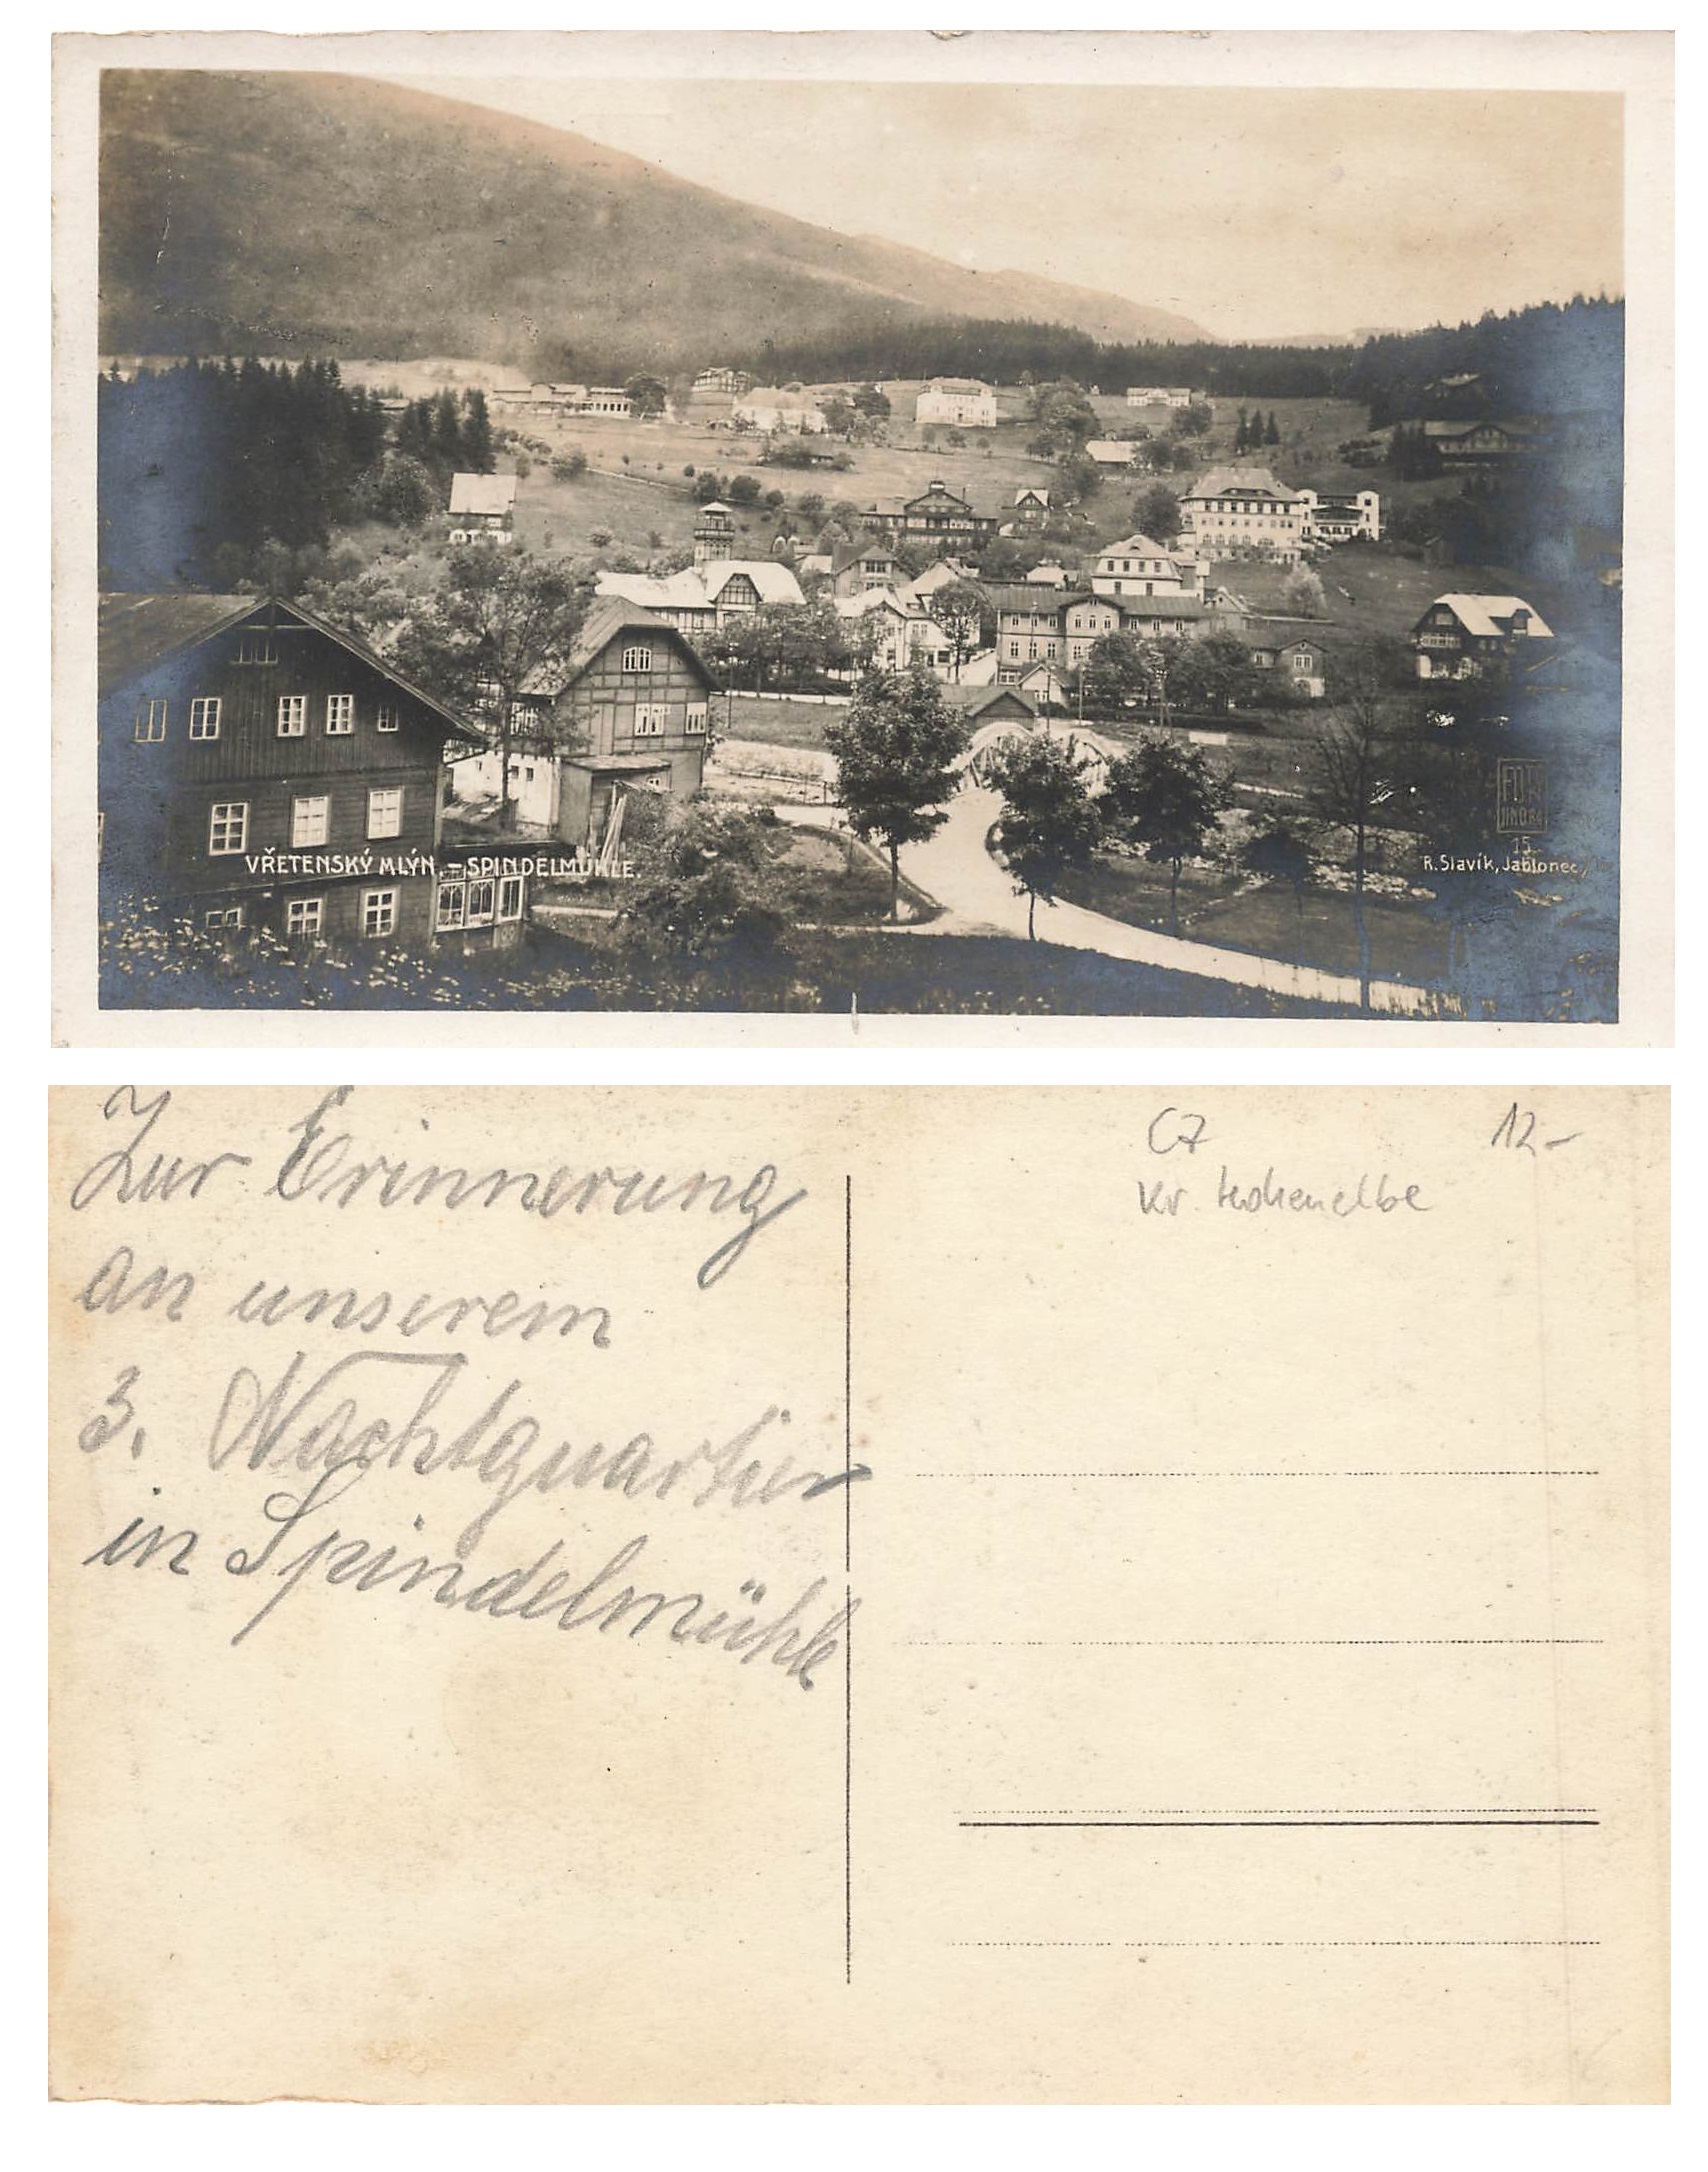 VŘETENSKÝ MLÝN. – SPINDELMÜHLE.
15.
R. Slavík, Jablonec
Zur Erinnerung
an unserem
3. Nachtquartier
in Spindelmühle
C7
12-
Kr. Hohenelbe